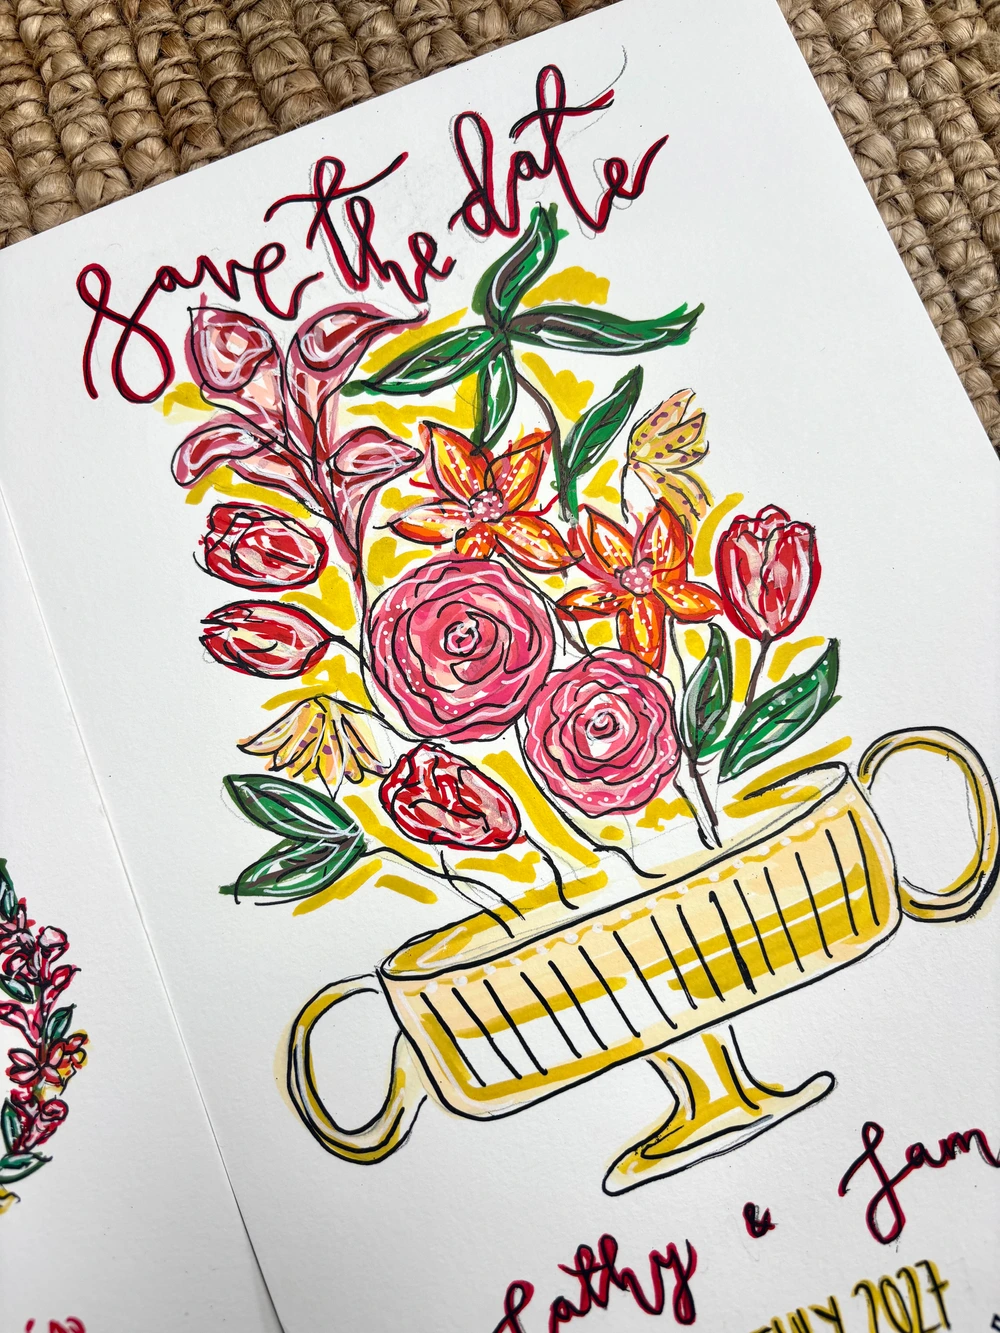 save the date
Cathy & Jam
JULY 2027